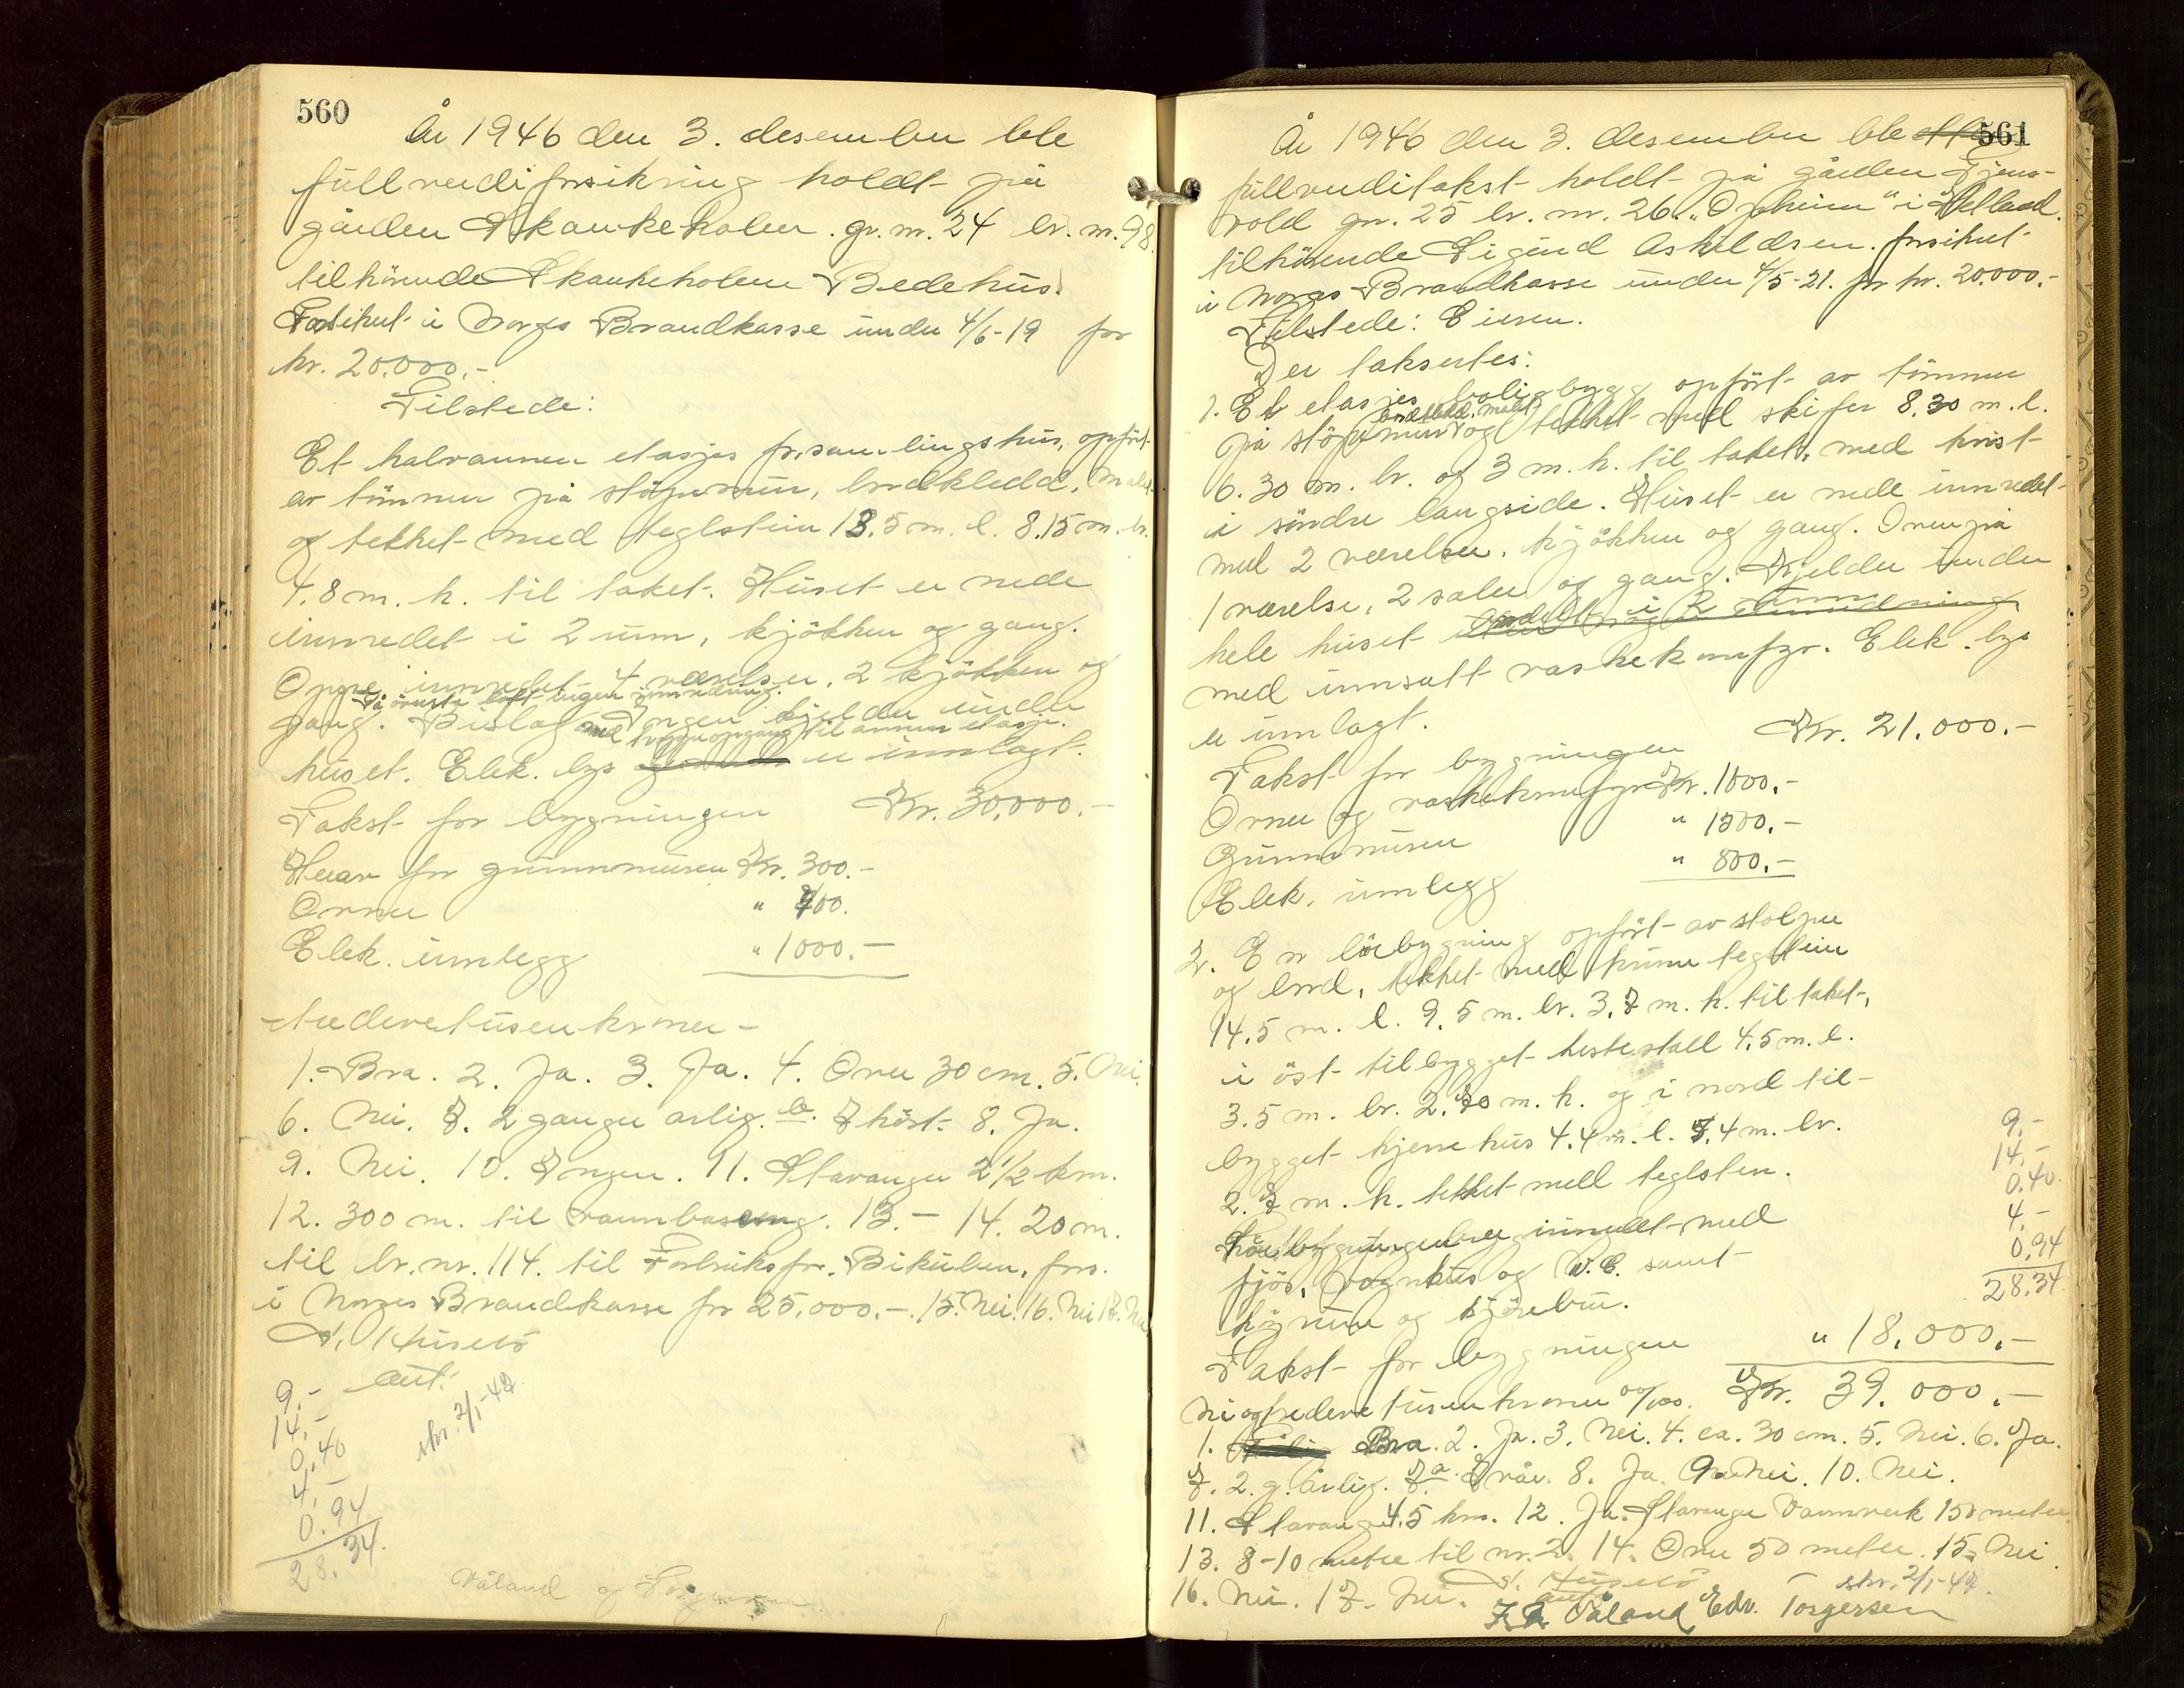 560
År 1946 den 3. desember ble
fullverdiforsikring holdt på
gården Skankeholen. gr. nr. 24 br. nr. 98.
tilhörende Skankeholen Bedehus.
Forsikret i Norges Brandkasse under 4/6-19 for
kr. 20.000.-
Tilstede:
Et halvannen etasjes forsamlingshus, opfört
av tömmer på stöpemur, bordkledd, malt
og tekket med teglstein 13.5 m. l. 8.15 m. br.
4,8 m. h. til taket. Huset er nede
innredet i 2 rum, kjökken og gang.
Oppe innredet 4 værelser, 2 kjökken og
På överste loft ingen innredning.
gang. Bislag Ingen kjelder under
med trappeopgang til annen etasje.
huset. Elek. lys er innlagt.
Takst for bygningen Kr. 30,000.-
Herav for grunnmuren Kr. 300.-
Ovner " 400.
Elek. innlegg " 1000.-
-tredevetusenkroner-
1. Bra. 2. Ja. 3. Ja. 4. Over 30 cm. 5. Nei.
6. Nei. 7. 2 ganger årlig. b. 7 höst. 8. Ja.
9. Nei. 10. Ingen. 11. Stavanger 2 1/2 km.
12. 300 m. til vannbasseng. 13. - 14. 20 m.
til br. nr. 114. til Forbruksfor. Bikuben, fors.
i Norges Brandkasse for 25.000.-. 15. Nei. 16. Nei 17. Nei
A. Husebö
aut.
skr. 2/1-47
9.-
14.-
0.40
4.-
0.94
28.34.
Våland og Torgersen
561
År 1946 den 3. desember ble
fullverditakst holdt på gården Tjens-
vold gr. 25 br. nr. 26. "Opheim" i Hetland.
tilhörende Sigurd Askildsen. forsikret
i Norges Brandkasse under 4/5-21. for kr. 20.000.-
Tilstede: Eieren.
Der taksertes:
1. Et etasjes boligbygg opfört av tömmer
bordkled. malt
på stöpemur og tekket med skifer 8.30 m. l.
6.30 m. br. og 3 m. h. til taket, med kvist
i söndre langside. Huset er nede innredet
med 2 værelser, kjökken og gang. Ovenpå
1 værelse, 2 saler og gang. Kjelder under
hele huset
med innsatt vaskekomfyr. Elek. lys
er innlagt.
Takst for bygningen Kr. 21.000.-
Ovner og vaskekomfyr Kr. 1000.-
Grunnmuren " 1500.-
Elek. innlegg " 800.-
2. En löebygning opfört av stolper
og bord, tekket med krum teglstein
14.5 m. l. 9.5 m. br. 3.7 m. h. til taket,
i öst tilbygget hestestall 4.5 m. l.
3.5 m. br. 2.70 m. h. og i nord til-
bygget kjerrehus 4.4 m. l. 7.4 m. br.
2.7 m. h. tekket med teglsten.
Löebygningen er innredet med
fjös, vognhus og W.C. samt
höyrum og kjörebru.
Takst for bygningen " 18.000.-
Kr. 39.000.-
Niogtredeve tusenkroner 00/100.
1. Bra. 2. Ja. 3. Nei. 4. ca. 30 cm. 5. Nei. 6. Ja.
7. 2. g. årlig. 7. a. 7 vår. 8. Ja. 9. Nei. 10. Nei.
11. Stavanger 4.5 km. 12. Ja. Stavanger Vannverk 150 meter
13. 8-10 meter til nr. 2. 14. Over 50 meter. 15. Nei.
16. Nei. 17. Nei. A. Husebö
aut.
skr. 2/1-47.
Våland Edv. Torgersen
9.-
14.-
0.40.
4.-
0.94
28.34